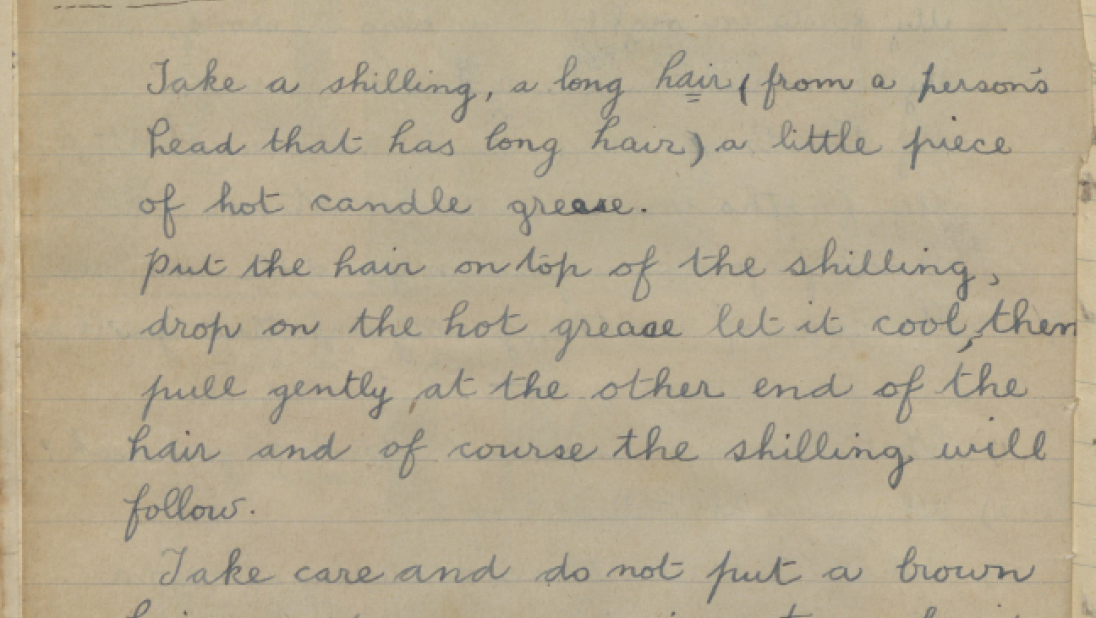 Take a shilling, a long hair (from a person's
head that has long hair) a little piece
of hot candle grease.
Put the hair on top of the shilling,
drop on the hot grease let it cool, then
pull gently at the other end of the
hair and of course the shilling will
follow.
Take care and do not put a brown